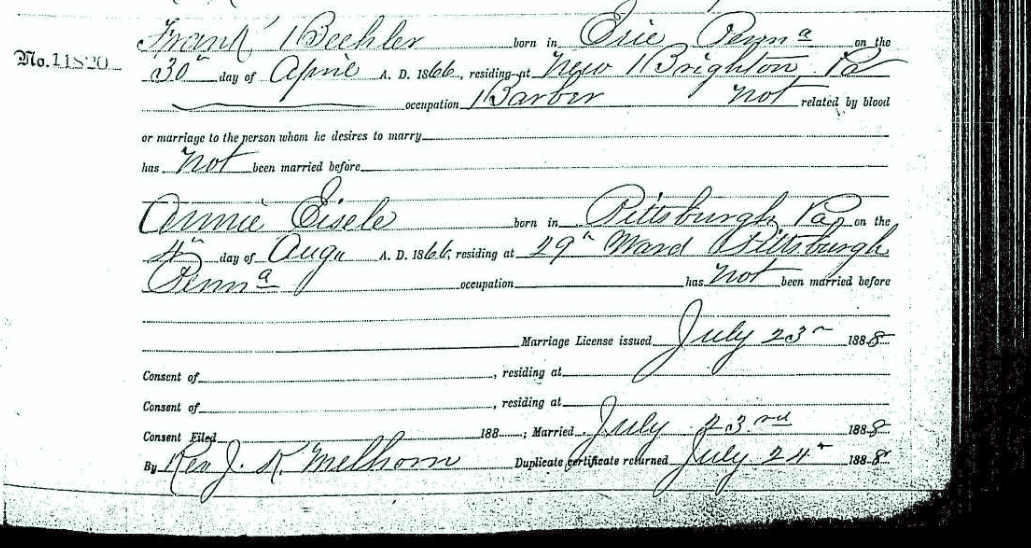 Frank Beehler born in Erie Penna on the
No. 11820
30" day of April A. D. 1866, residing at New Brighton Pa
occupation Barber not related by blood
or marriage to the person whom he desires to marry
has not been married before
Annie Eisele born in Pittsburgh Pa, on the
4" day of Aug A. D. 1866, residing at 29" Ward Pittsburgh
Penna occupation has not been married before
Marriage License issued July 23" 1888
Consent of , residing at
Consent of , residing at
Consent Filed 188 ; Married July 23rd 1888
By Rev J. K. Melhorn Duplicate certificate returned July 24" 1888